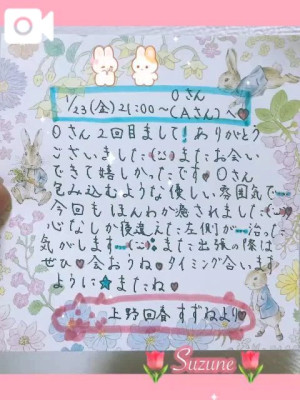 Oさん
1/23(金)21:00〜(Aさん)へ♥
Oさん2回目まして!ありがとう
ございました(ˊᵕˋ)またお会い
できて嬉しかったです♡Oさん
包み込むような優しい雰囲気で
今回もほんわか癒されました
心なしか寝違えた左側が治った
気がします またご出張の際は
ぜひ♥会おうね♡タイミング合います
ように★またね♥
上野回春 すずねより♥
Suzune